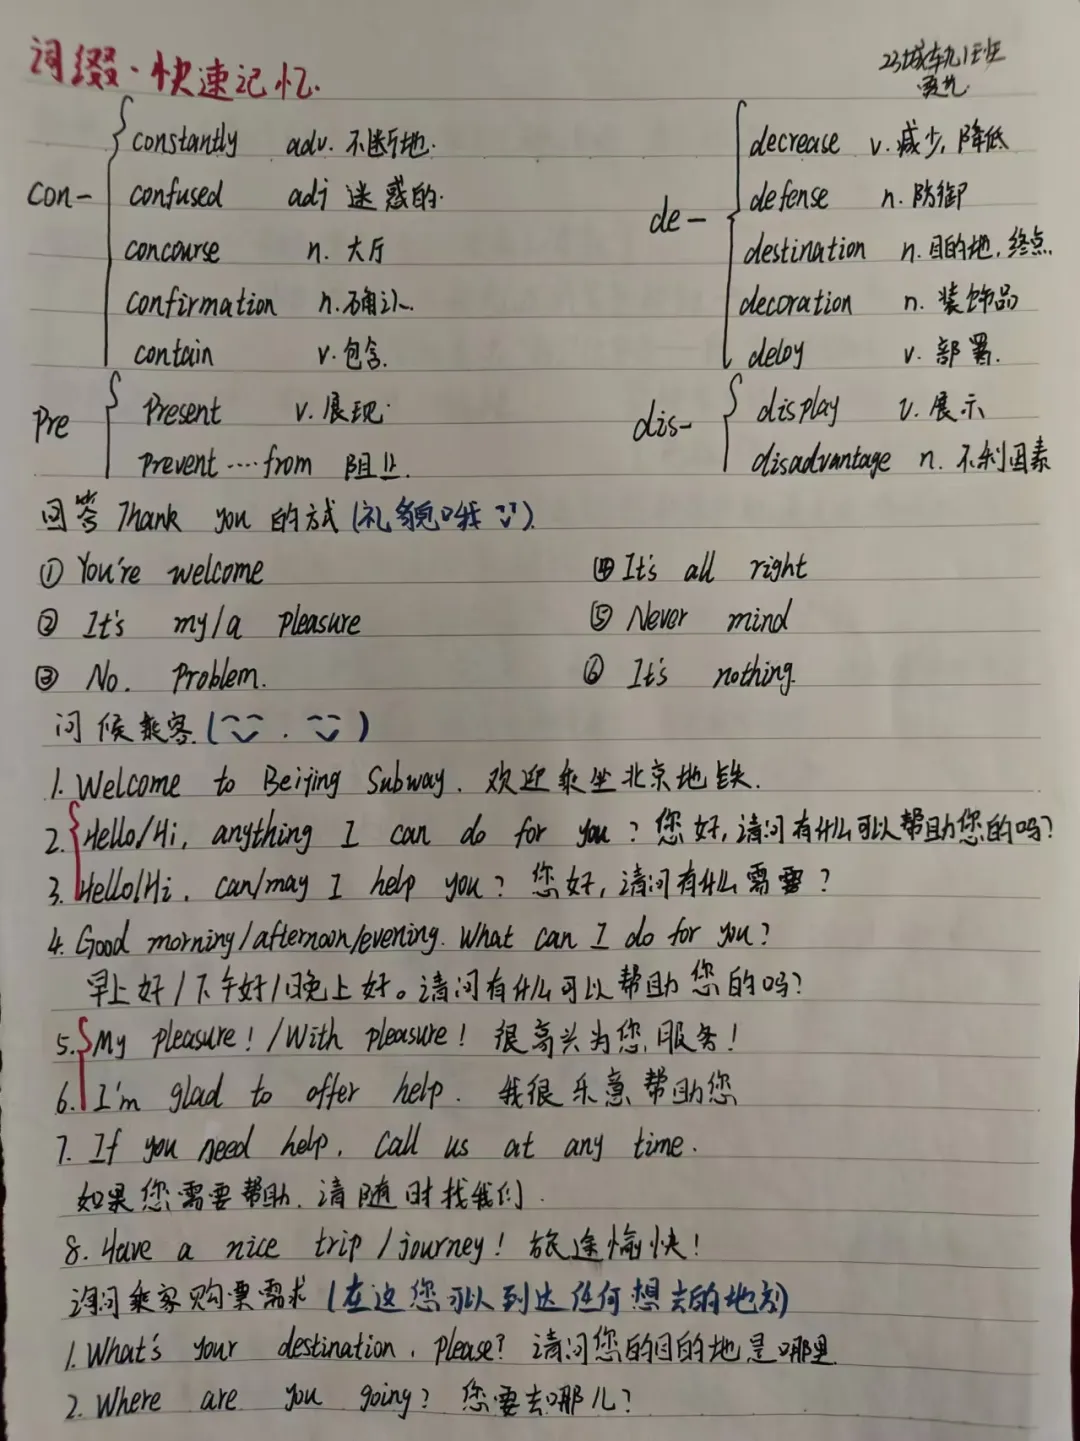 词缀·快速记忆.
23城车九1班
con-
constantly adv. 不断地.
confused adj 迷惑的.
concourse n. 大厅
confirmation n. 确认.
contain v. 包含.
de-
decrease v. 减少, 降低
defense n. 防御
destination n. 目的地, 终点.
decoration n. 装饰品
deloy v. 部署.
Pre
Present v. 展现.
Prevent ····from 阻止.
dis-
display v. 展示
disadvantage n. 不利因素
回答 Thank you 的方式 (礼貌哦)
① You're welcome
② It's my/a pleasure
③ No. Problem.
④ It's all right
⑤ Never mind
⑥ It's nothing.
问候乘客
1. Welcome to Beijing Subway. 欢迎乘坐北京地铁.
2. Hello/Hi, anything I can do for you? 您好, 请问有什么可以帮助您的吗?
3. Hello/Hi. can/may I help you? 您好, 请问有什么需要?
4. Good morning/afternoon/evening. What can I do for you?
早上好/下午好/晚上好。请问有什么可以帮助您的吗?
5. My pleasure! /With pleasure! 很高兴为您服务!
6. I'm glad to offer help. 我很乐意帮助您
7. If you need help, Call us at any time.
如果您需要帮助, 请随时找我们.
8. Have a nice trip/journey! 旅途愉快!
询问乘客购票需求 (在这您可以到达任何想去的地方)
1. What's your destination, please? 请问您的目的地是哪里
2. Where are you going? 您要去哪儿?